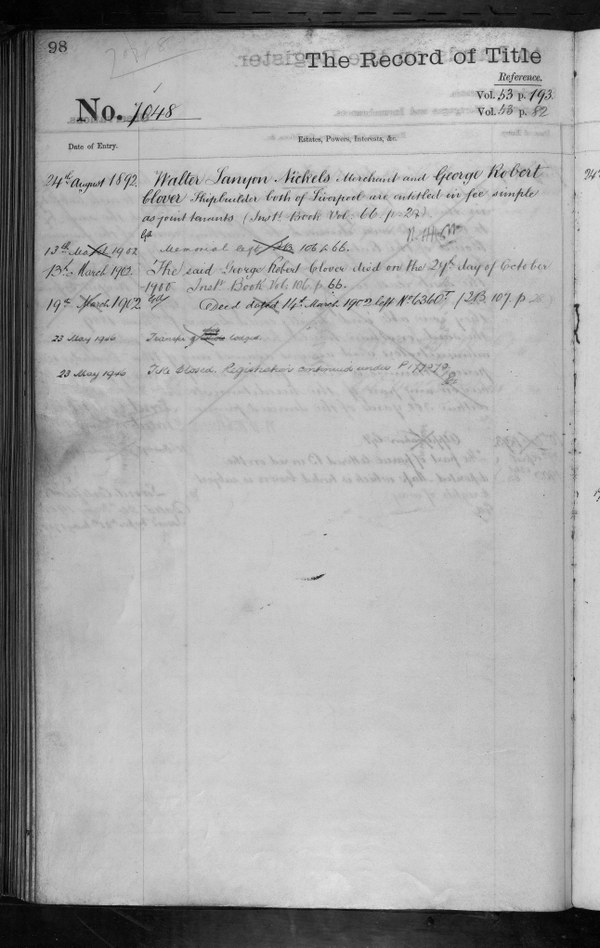 98
The Record of Title
Reference.
Vol. 53 p. 193
Vol. 55 p. 82
No. 1048
Date of Entry.
Estates, Powers, Interests, &c.
24th August 1892 Walter Lanyon Nickels Merchant and George Robert
Clover Shipbuilder both of Liverpool are entitled in fee simple
as joint tenants (Inst. Book Vol: 66 p. 22).
13th March 1902 Memorial left 106 p. 66.
13th March 1902. The said George Robert Clover died on the 27th day of October
1900 Inst. Book Vol: 106 p. 66.
19th March 1902 Deed dated 14th March 1902 left No 6360 213. 107. p
23 May 1946 Transfer lodged.
23 May 1946 Title Closed. Registration continued under P